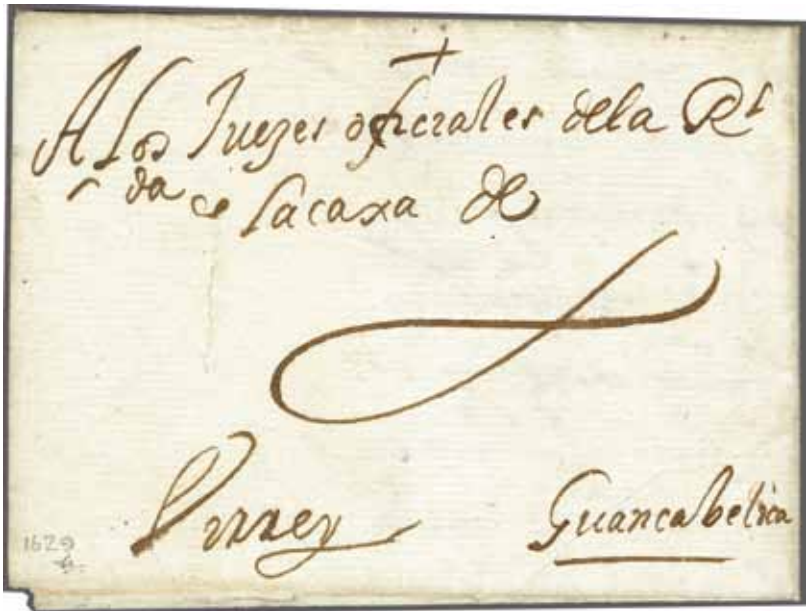 A los Juezes ofiçiales dela Rl
da de la caxa de
Virrey Guancabelica
1629